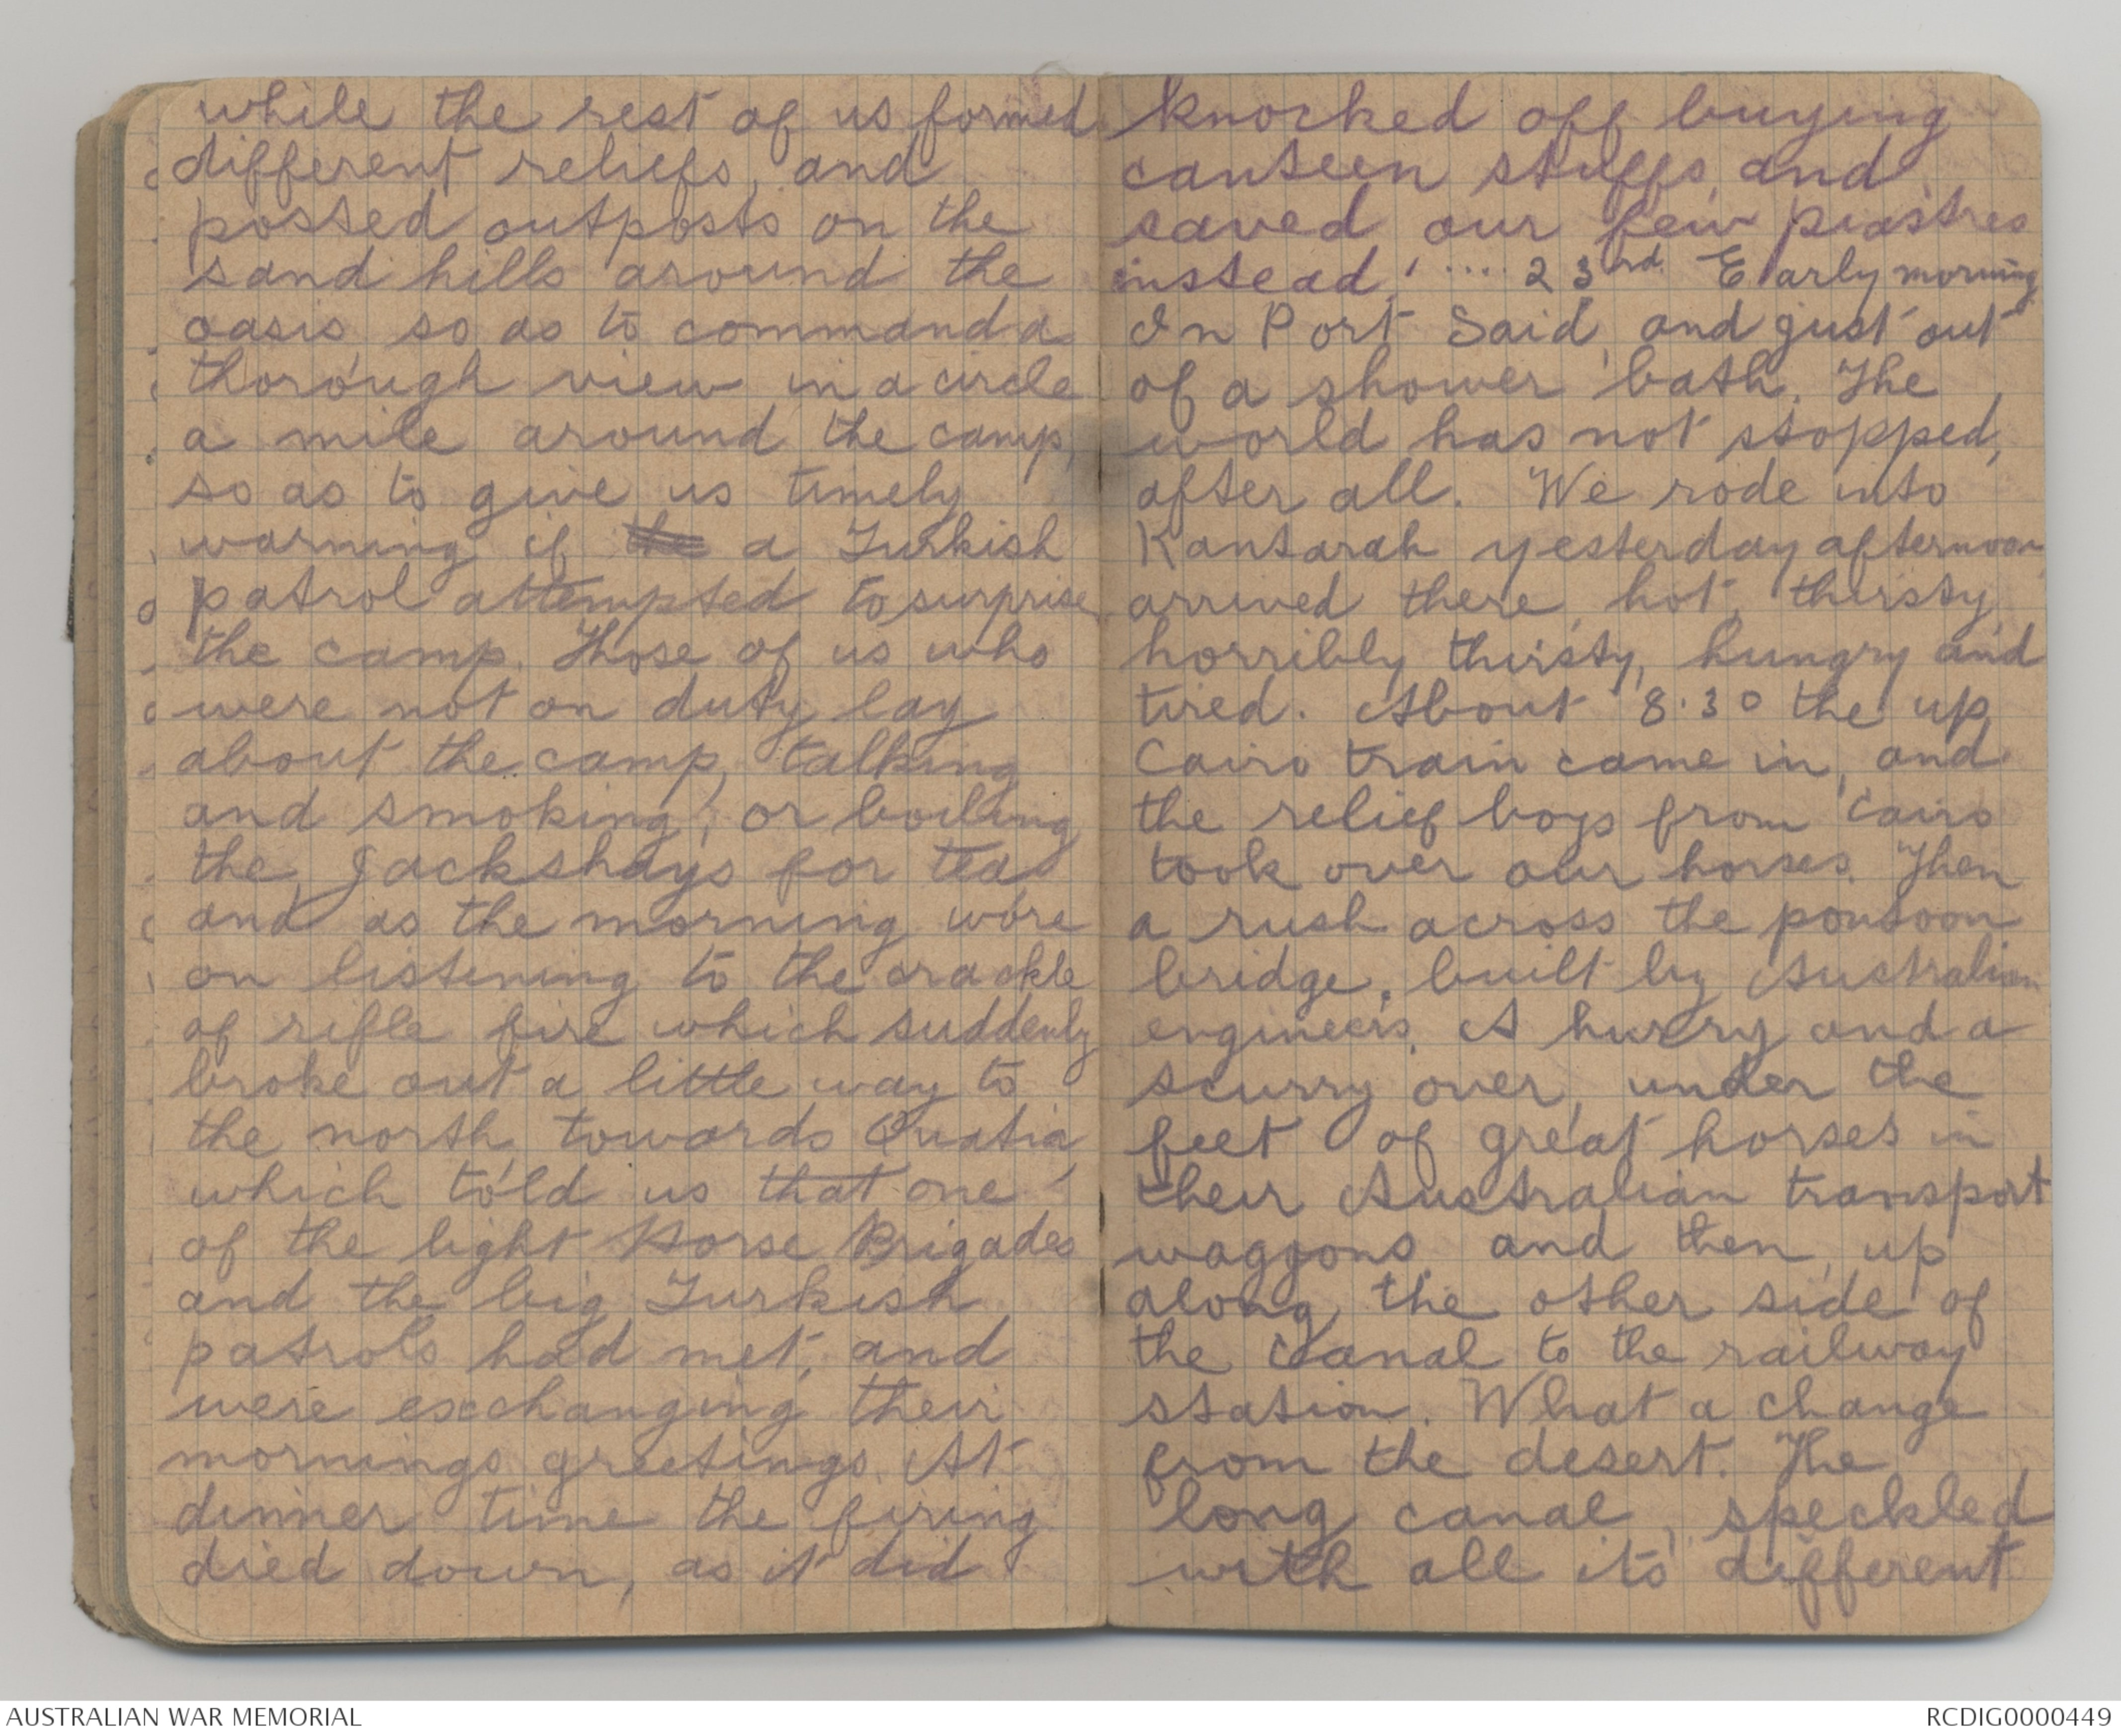 while the rest of us formed
different reliefs, and
possed outposts on the
sand hills around the
oasis, so as to command a
thorough view in a circle
a mile around the camp,
so as to give us timely
warning if the a Turkish
patrol attempted to surprise
the camp. Those of us who
were not on duty lay
about the camp, talking
and smoking, or boiling
the Jackshays for tea
and as the morning wore
on listening to the crackle
of rifle fire which suddenly
broke out a little way to
the north, towards Quatia
which told us that one
of the light Horse Brigades
and the big Turkish
patrols had met, and
were exchanging their
mornings greetings. At
dinner time the firing
died down, as it did
knocked off buying
canteen stuffs, and
saved our few piastres
instead! .... 23rd. Early morning
In Port Said, and just out
of a shower bath. The
world has not stopped,
after all. We rode into
Kantarah yesterday afternoon
arrived there, hot, thirsty,
horribly thirsty, hungry and
tired. About 8.30 the up
Cairo train came in, and
the relief boys from Cairo
took over our horses. Then
a rush across the pontoon
bridge, built by Australian
engineers. A hurry and a
scurry over, under the
feet of great horses in
their Australian transport
waggons and then up
along the other side of
the Canal to the railway
station. What a change
from the desert. The
long canal, speckled
with all its different
AUSTRALIAN WAR MEMORIAL
RCDIG0000449